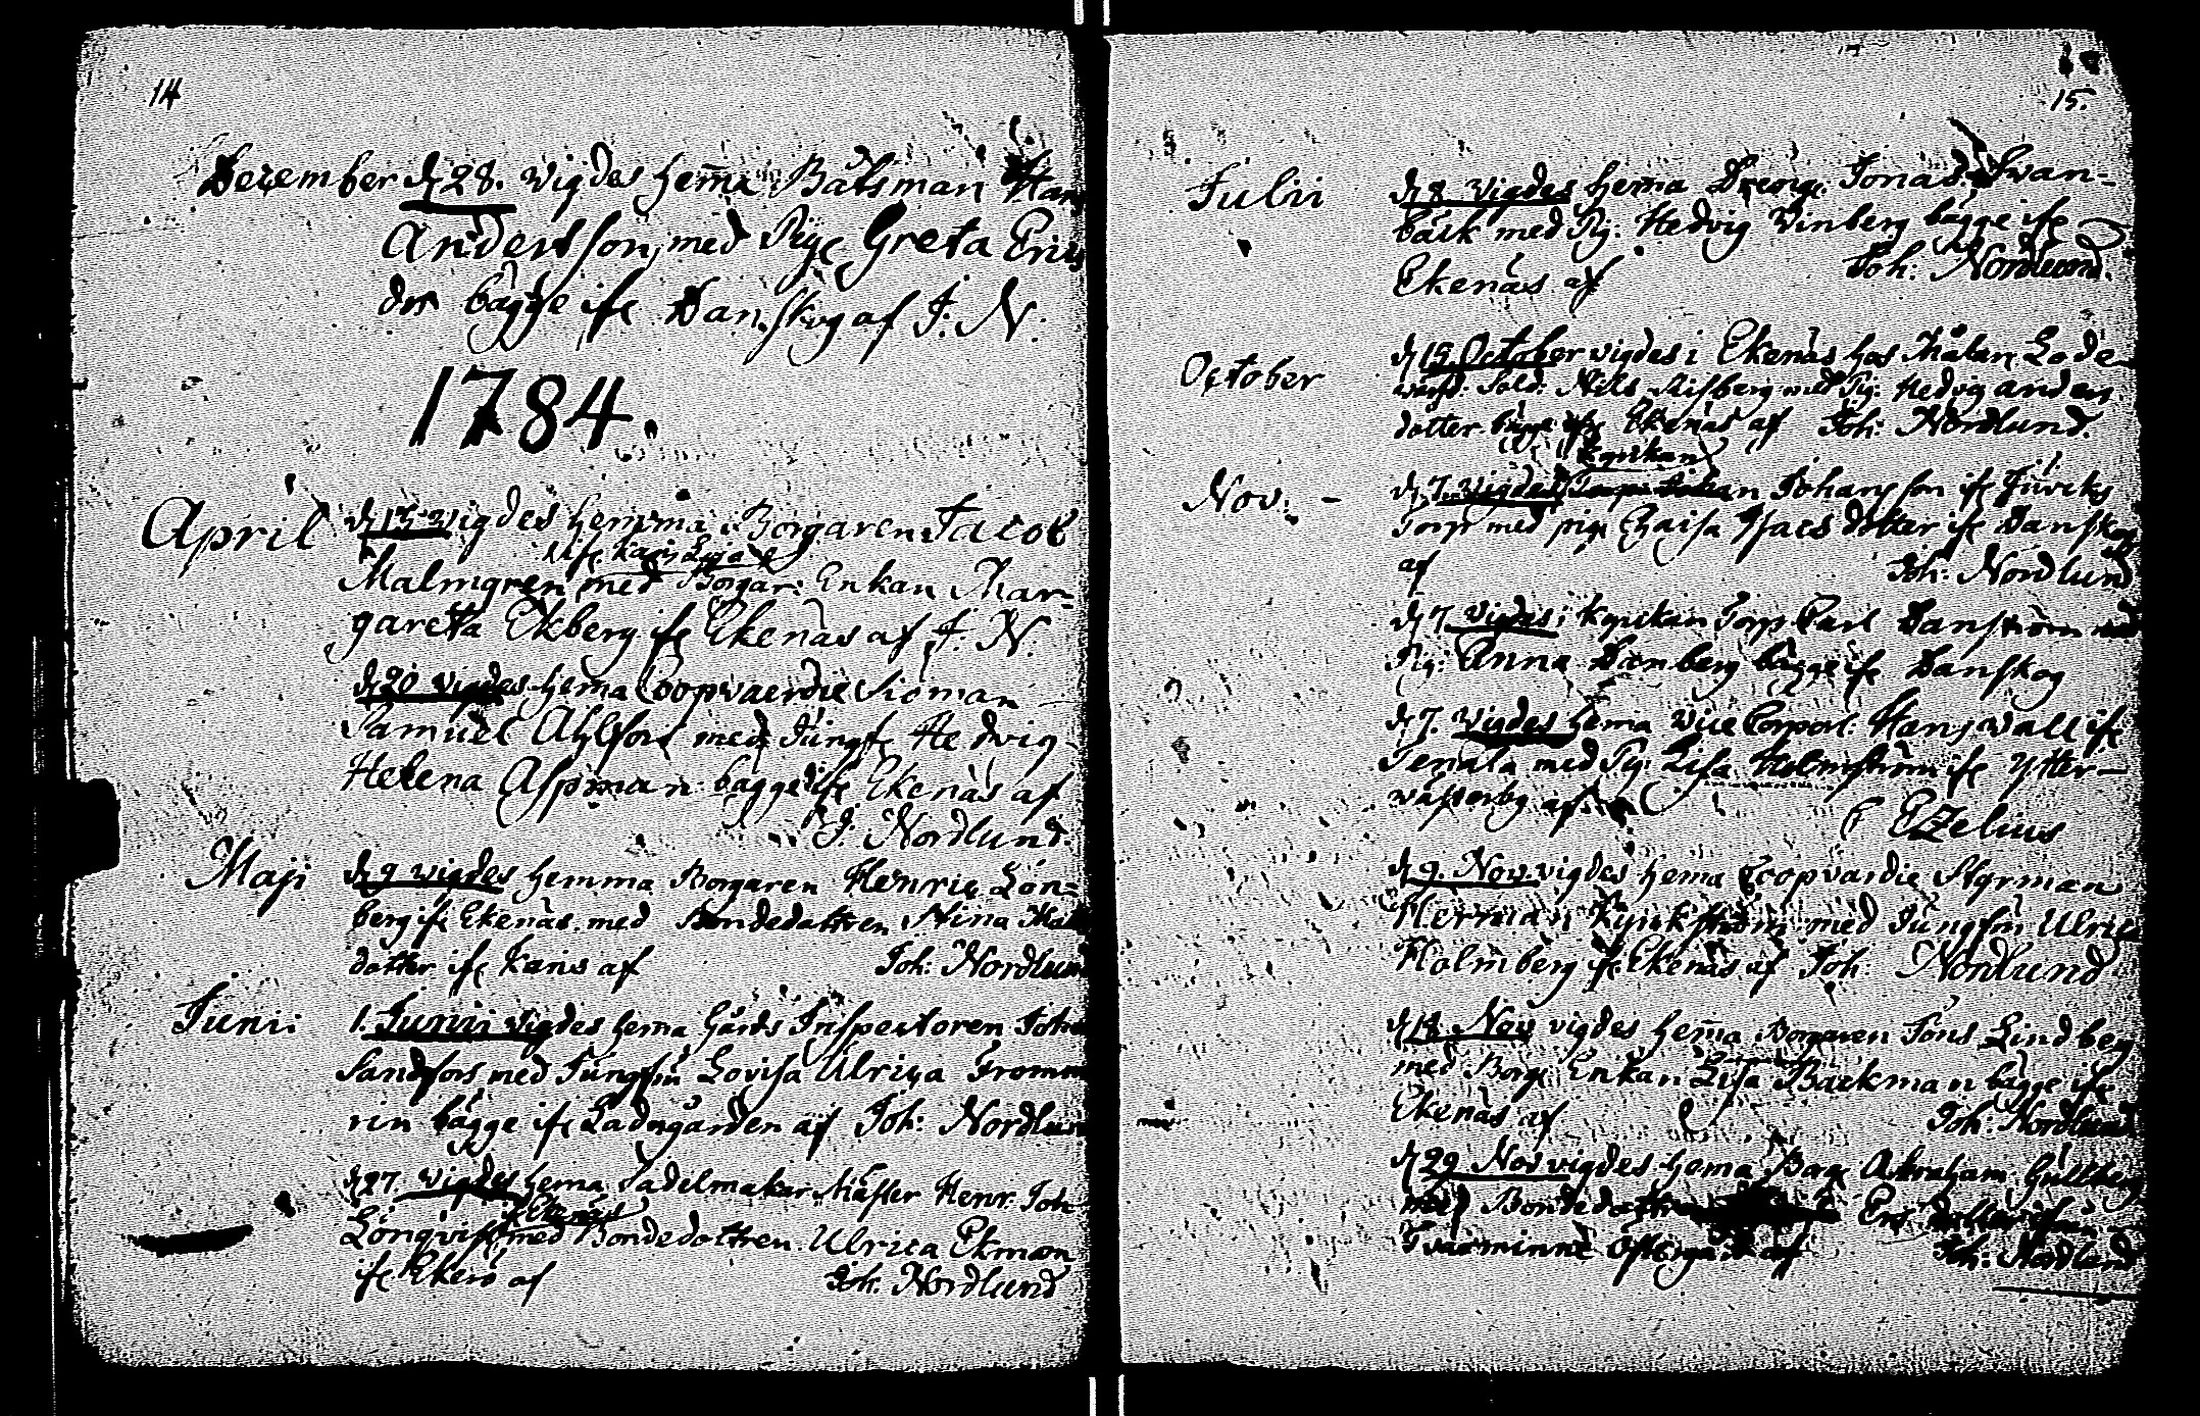 14
December d 28. vigdes hema Båtsman Hans
Andersson med Pig. Greta Erics
dor bägge ifr Danskog af J. N.
1784.
April d 13 vigdes hemma Borgaren Jacob
Malmgren med Borgar Enkan Mar-
gareta Ekberg ifr Ekenäs af J. N.
d 20 vigdes hema Coopvaerdie Sioman
Samuel Ahlfors med Jungfr Hedvig
Helena Aspman bägge ifr Ekenäs af
J. Nordlund.
Maji d 9 vigdes hemma Borgaren Henric Lön-
berg ifr Ekenäs med Bondedottren Stina
dotter ifr Karis af Joh: Nordlund
Junii 1. Junii vigdes hema Gårds Inspectoren Joha
Sandfors med Jungfru Lovisa Ulrica
bägge ifr Ladugården af Joh: Nordlund
d 27. vigdes hema Sadelmakar Mäster Henr. Joh
ifr Ekenäs
Lönqvist med Bondedottren Ulrica Ekman
ifr Ekerö af Joh. Nordlund
15.
Julii d 8 vigdes hema Dreng. Jonas Svan-
bäck med Pig: Hedvig Vinberg bägge ifr
Ekenäs af Joh: Nordlund.
October d 15. October vigdes i Ekenäs hos
Sold: Nils med Pig: Hedvig anders
dotter bägge ifr Ekenäs af Joh: Nordlund.
kyrkan
Nov: - d. 7. vigdes Johansson ifr
Torp med pig. Chaisa Isacs dotter ifr Danskog
af Joh: Nordlund
d 7. vigdes i kyrkan Torp. Carl Danström med
Pig: Anna Danberg bägge ifr Danskog
d 7. vigdes hema Vice Corporl. Hans Wall ifr
Tenala med Pig: Lisa Holmström ifr Ytter-
af
Ezelius
d 9. Nov vigdes hema Coopvardie Styrman
Herman Kyrkström med Jungfru Ulric
Holmberg ifr Ekenäs af Joh: Nordlund
d 18 Nov vigdes hema Borgaren Jöns Lindberg
med Borg. Enkan Lisa Backman bägge ifr
Ekenäs af Joh: Nordlund
d 29 Nov vigdes hema Borg. Abraham Gullberg
med Bondedottren Ers dotter ifrån
Tvärminne af Joh: Nordlund